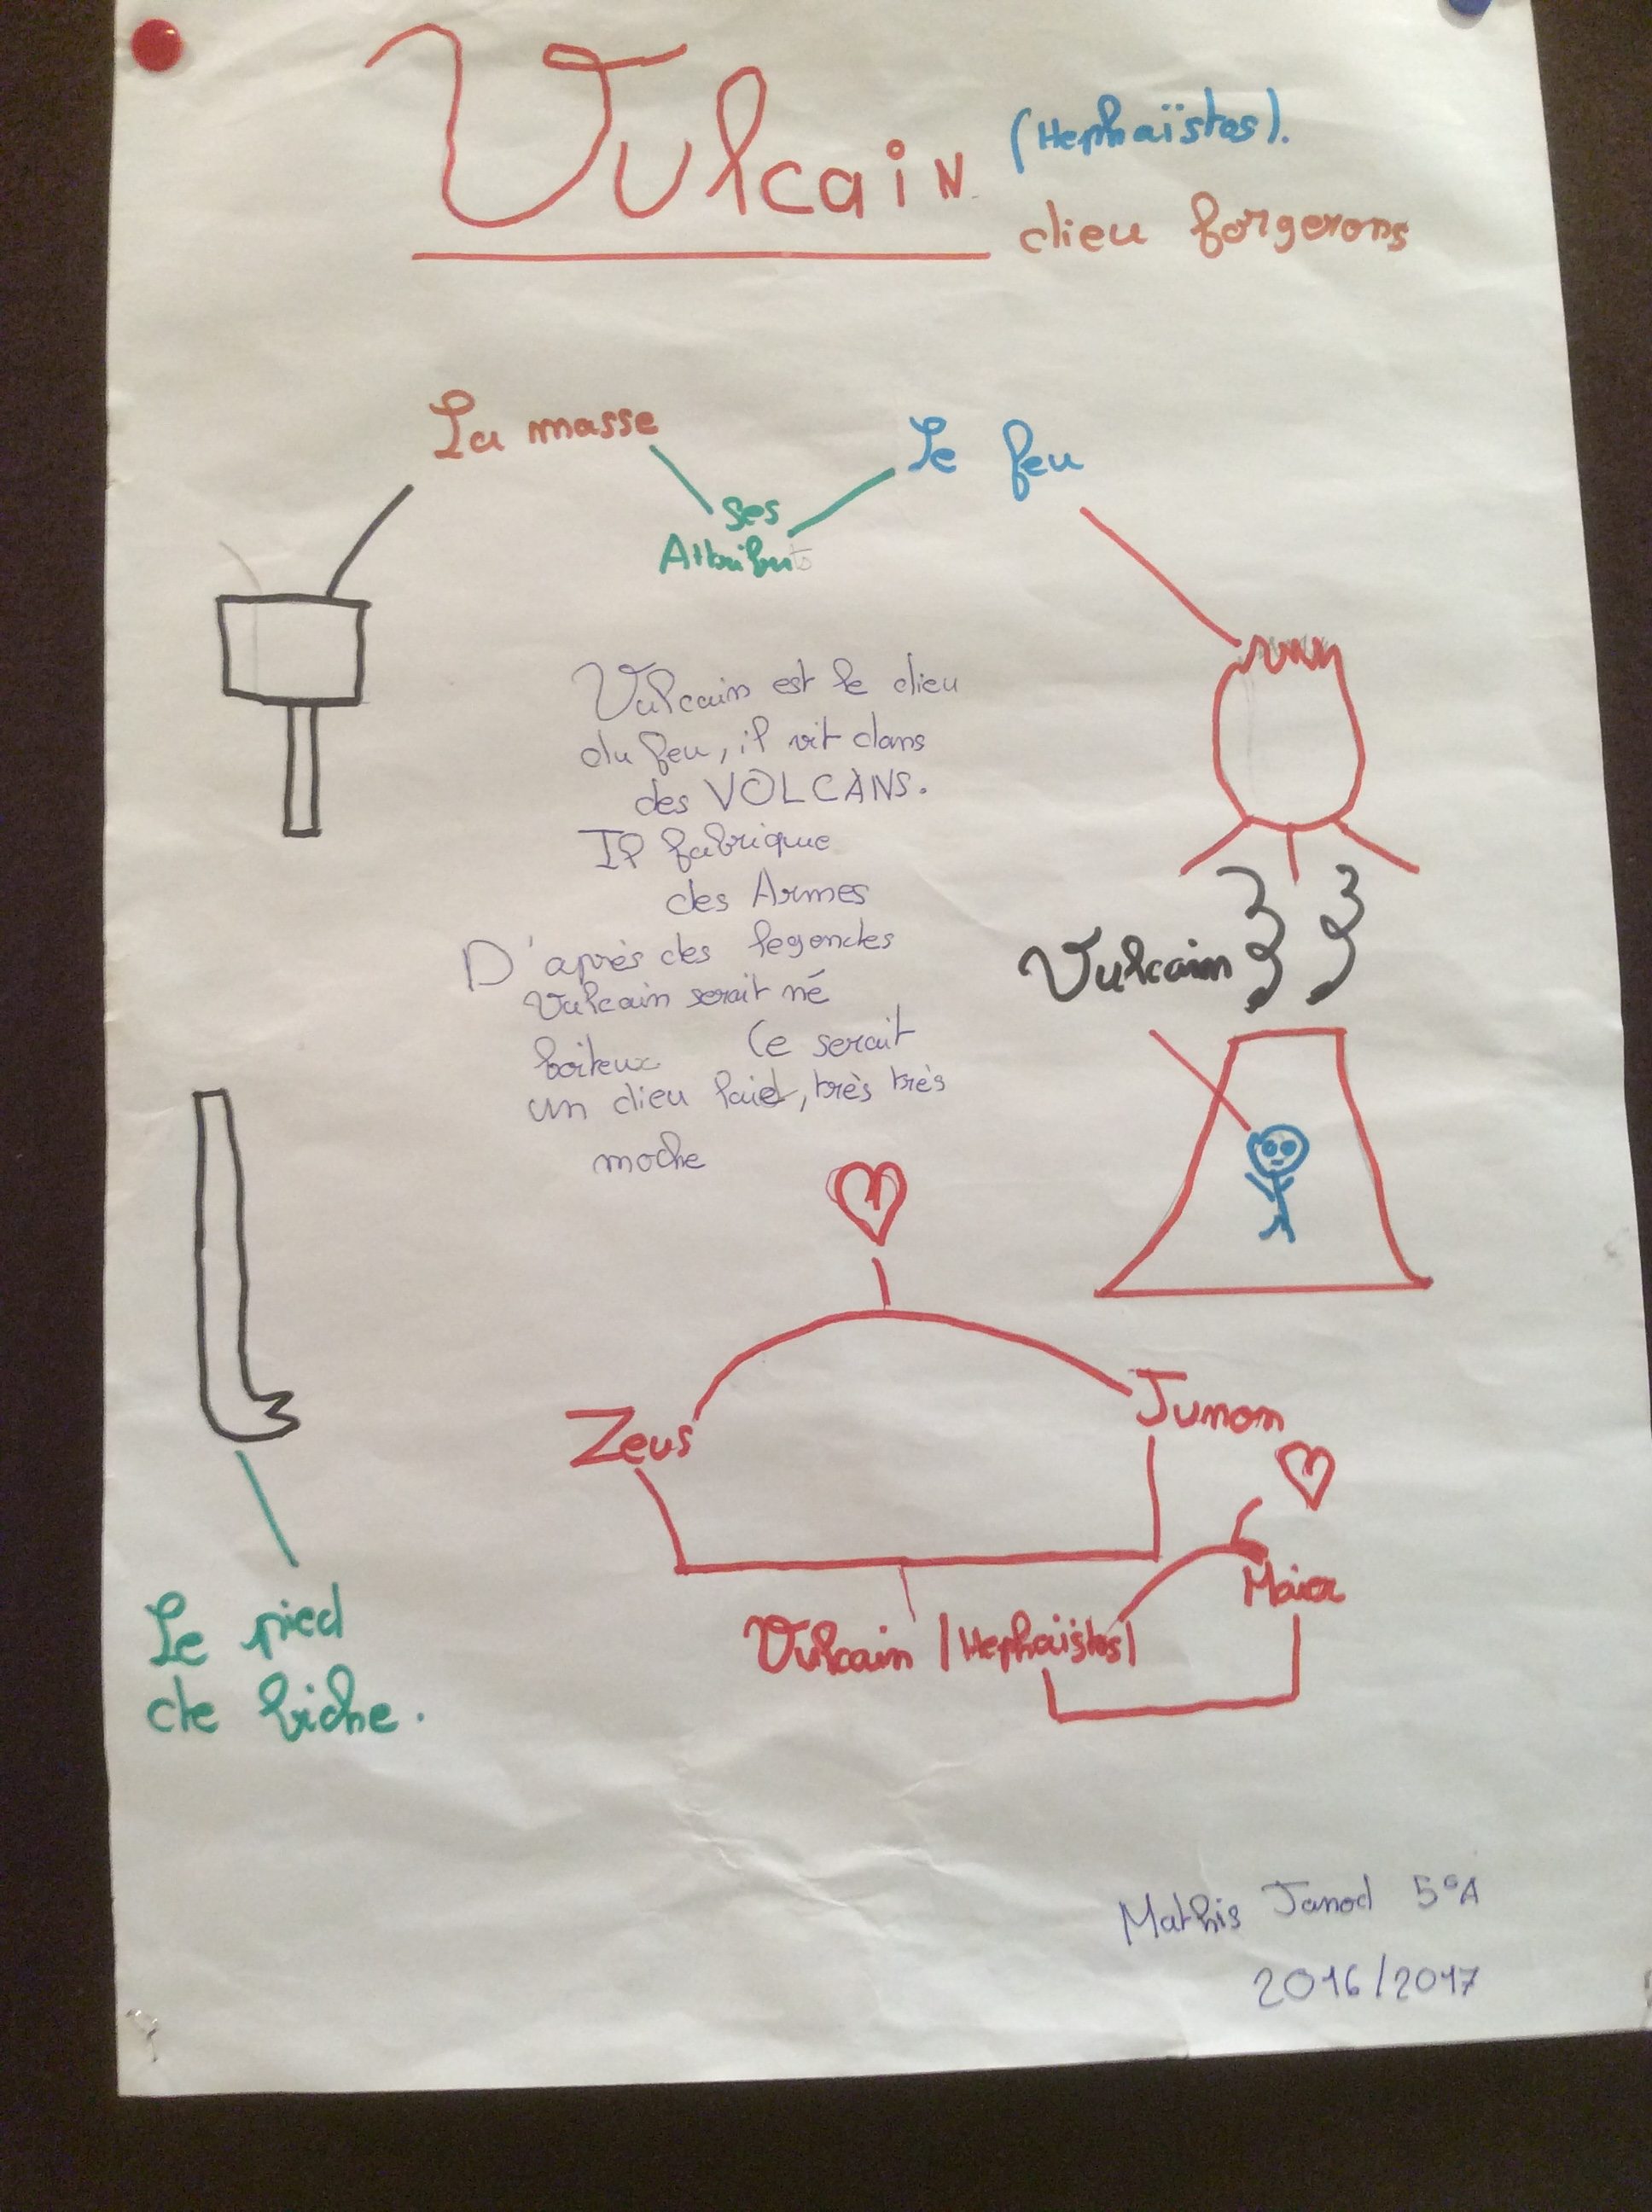 Vulcain
(Hephaïstos).
dieu forgerons
La masse
Le feu
Ses
Attributs
Vulcain est le dieu
du feu, il vit dans
des VOLCANS.
Il fabrique
des Armes
D'après des legendes
Vulcain serait né
boiteux Ce serait
un dieu laid, très très
moche
Vulcain
Zeus
Junon
Vulcain (Hephaïstos)
Le pied
de biche.
Mathis Janod 5°A
2016/2017